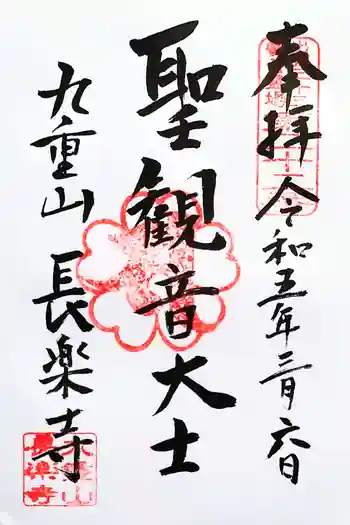 奉拝 令和五年三月六日
聖観音大士
九重山 長楽寺
長楽寺